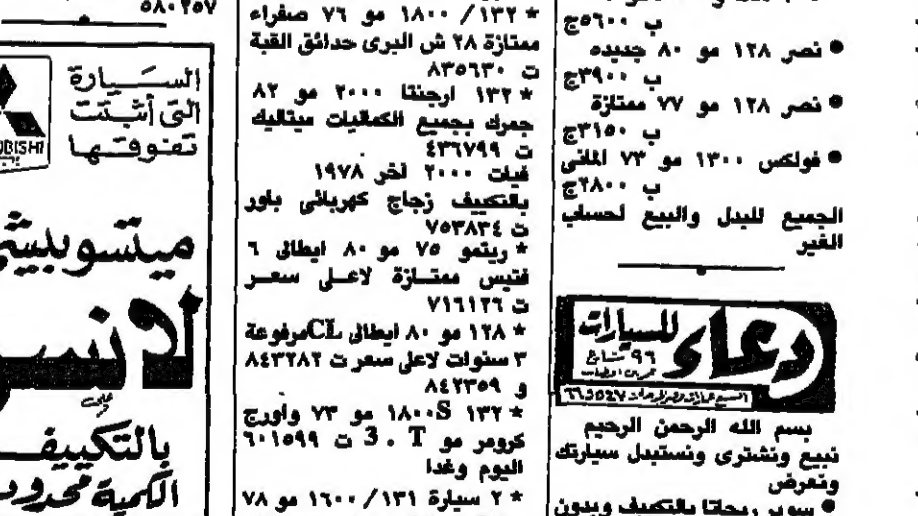 ب ٥٦٠٠ج
● نصر ١٢٨ مو ٨٠ جديده
ب ٣٩٠٠ج
● نصر ١٢٨ مو ٧٧ ممتازة
ب ٣١٥٠ج
● فولكس ١٣٠٠ مو ٧٣ المانى
ب ٢٨٠٠ج
الجميع للبدل والبيع لحساب
الغير
دعاء للسيارات
٩٦ شارع
بسم الله الرحمن الرحيم
نبيع ونشترى ونستبدل سيارتك
ونعرض
● سوبر ريجاتا بالتكييف وبدون
* ١٣٢/ ١٨٠٠ مو ٧٦ صفراء
ممتازة ٢٨ ش البرى حدائق القبة
ت ٨٣٥٦٣٠
* ١٣٢ ارجنتا ٢٠٠٠ مو ٨٢
جمرك بجميع الكماليات ميتاليك
ت ٤٣٦٧٩٩
فيات ٢٠٠٠ أخر ١٩٧٨
بالتكييف زجاج كهربائى باور
ت ٧٥٣٨٣٤
* ريتمو ٧٥ مو ٨٠ ايطالى ٦
فتيس ممتازة لاعلى سعر
ت ٧١٦١٢٦
* ١٢٨ مو ٨٠ ايطالى CL مرفوعة
٣ سنوات لاعلى سعر ت ٨٤٣٢٨٢
و ٨٤٢٣٥٩
* ١٣٢ ١٨٠٠S مو ٧٣ واورج
كرومر مو 3 . T ت ٦٠١٥٩٩
اليوم وغدا
* ٢ سيارة ١٣١/ ١٦٠٠ مو ٧٨
٥٨٠٢٥٧
السيارة
التى أثبتت
تفوقها
ميتسوبيشى
لانسر
على
بالتكييف
الكمية محدودة